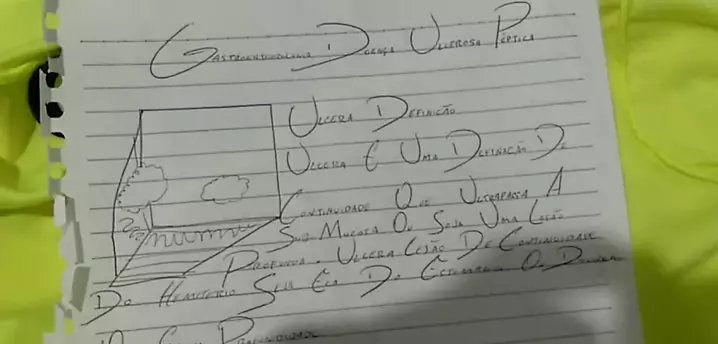 Gastroenterologia Doença Ulcerosa Péptica
Ulcera Definição
Ulcera É Uma Definição De
Continuidade Que Ultrapassa A
Sub Mucosa Ou Seja Uma Lesão
Profunda. Ulcera Lesão De Continuidade
Do Seja Do Estomago Ou